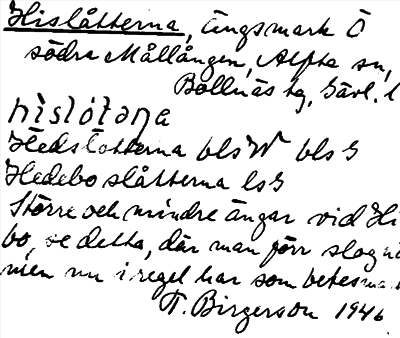 Hislåtterna, ängsmark Ö
södra Mållången, Alfta sn,
Bollnäs tg, Gävl. l
Hedslotterna bls W bls G
Hedeboslåtterna ls G
Större och mindre ängar vid Hi
bo, se detta, där man förr slog
men nu i regel har som betesma
T. Birgerson 1946